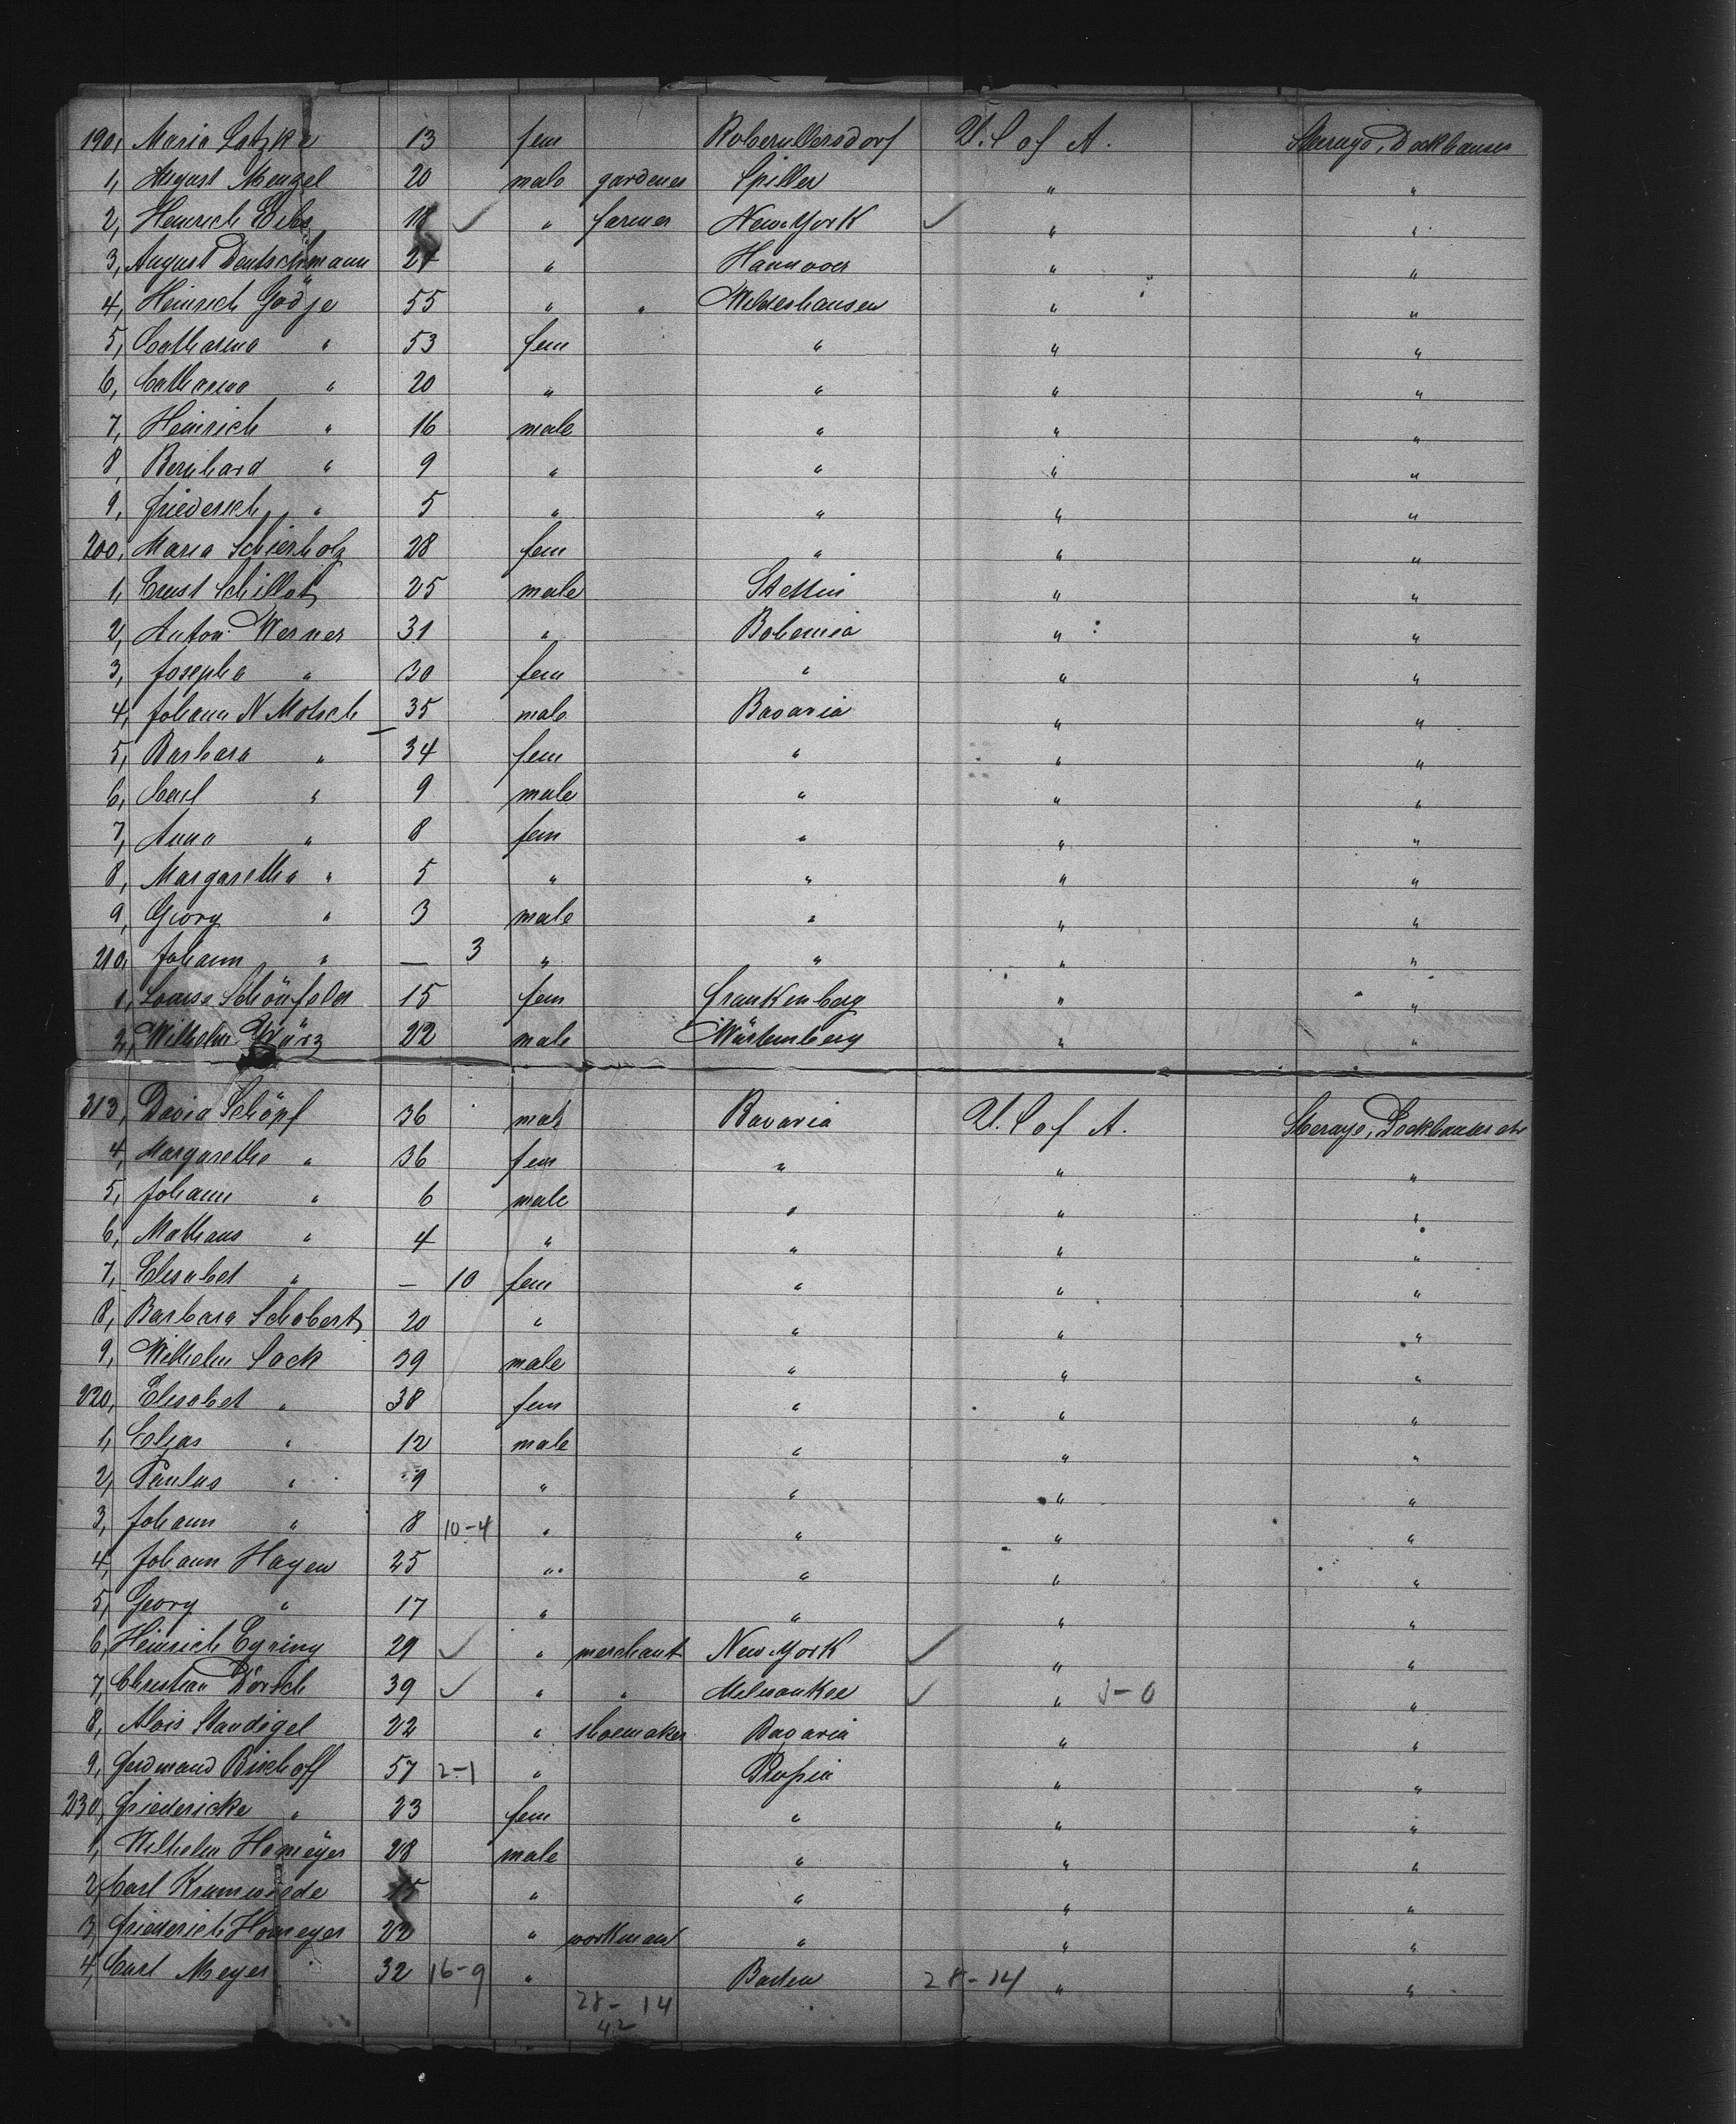 190, Maria Latzke 13 fem U. S of A. Steerage, Deckhouses
1, August Menzel 20 male gardener Spiller " "
2, Heinrich 18 ✓ " farmer New-York ✓ " "
3, August Deutschmann 24 " Hannover " "
4, Heinrich Gödje 55 " " Wildeshausen " "
5, Catharina " 53 fem " " "
6, Catharina " 20 " " " "
7, Heinrich " 16 male " " "
8, Bernhard " 9 " " " "
9, Friederich " 5 " " " "
200, Maria Schierholz 28 fem " " "
1, Ernst Schillat 25 male Stettin " "
2, Anton Werner 31 " Bohemia " "
3, Josepha " 30 fem " " "
4, Johann N Motsch 35 male Bavaria " "
5, Barbara " 34 fem " " "
6, Carl " 9 male " " "
7, Anna " 8 fem " " "
8, Margaretha " 5 " " " "
9, Georg " 3 male " " "
210, Johann " — 3 " " " "
1, Louise Schönfelder 15 fem Frankenberg " "
2, Wilhelm Würz 22 male Würtemberg " "
213, David Schöpf 36 male Bavaria U. S of A. Steerage, Deckhouses etc
4, Margarethe " 36 fem " " "
5, Johann " 6 male " " "
6, Mathaus " 4 " " " "
7, Elisabet " — 10 fem " " "
8, Barbara Schobert 20 " " " "
9, Wilhelm Sack 39 male " " "
220, Elisabet " 38 fem " " "
1, Elias " 12 male " " "
2, Paulus " 9 " " " "
3, Johann " 8 10-4 " " " "
4, Johann Hagen 25 " " " "
5, Georg " 17 " " " "
6, Heinrich Eyring 29 ✓ " merchant New-York ✓ " "
7, Christian Dörsch 39 ✓ " " Milwaukee ✓ " "
8, Alois Standigel 22 " shoemaker Bavaria " "
9, Ferdinand Bischoff 57 2-1 " Prussia " "
230, Friedericke " 23 fem " " "
1, Wilhelm Homeÿer 28 male " " "
2, Carl Krumwiede 15 " " " "
3, Friederich Homeyer 22 " workman " " "
4, Carl Meyer 32 16-9 " Baden 28-14 " "
28-14
42